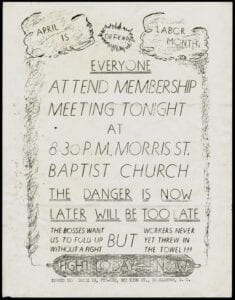 APRIL
15
DEFEAT
LABOR
MONTH
EVERYONE
ATTEND MEMBERSHIP
MEETING TONIGHT
AT
8:30 P.M. MORRIS ST.
BAPTIST CHURCH
THE DANGER IS NOW
LATER WILL BE TOO LATE
THE BOSSES WANT
US TO FOLD UP
WITHOUT A FIGHT
BUT
WORKERS NEVER
YET THREW IN
THE TOWEL!!!
FIGHT TODAY NOW
ISSUED BY: LOCAL 15, KING ST., CHARLESTON, S. C.